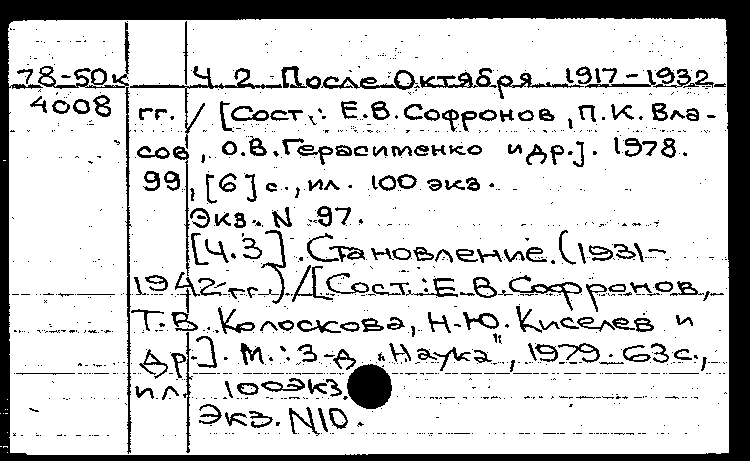 78-50к Ч. 2 После Октября. 1917-1932
4008 гг. / [Сост.: Е.В.Софронов, П.К.Вла-
сов, О.В.Герасименко и др.]. 1978.
99, [6] с., ил. 100 экз.
Экз. N 97.
[Ч.3]. Становление. (1931-
1942 гг.) / [Сост.: Е.В.Софронов,
Т.В. Колоскова, Н.Ю. Киселев и
др.]. М.: З-д "Наука", 1979. 63 с.,
ил. 100 экз.
Экз. N10.